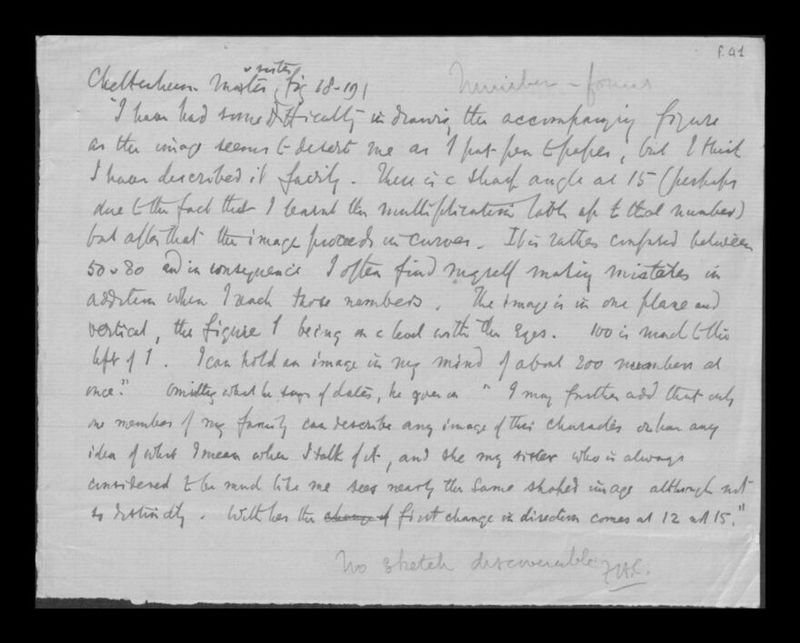 f.41
Number-forms
Cheltenham master writes, fig 18-19
"I have had some difficulty in drawing the accompanying figure
as the image seems to desert me as I put pen to paper, but I think
I have described it fairly. There is a sharp angle at 15 (perhaps
due to the fact that I learnt the multiplication table up to that number)
but after that the image proceeds in curves. It is rather confused between
50 & 80 and in consequence I often find myself making mistakes in
addition when I reach those numbers. The image is in one plane and
vertical, the figure 1 being on a level with the eyes. 100 is much to the
left of 1. I can hold an image in my mind of about 200 numbers at
once." Omitting what he says of dates, he goes on "I may further add that only
one member of my family can describe any image of this character or has any
idea of what I mean when I talk of it, and she my sister who is always
considered to be much like me sees nearly the same shaped image although not
so distinctly. With her the change of first change in direction comes at 12 not 15."
No sketch discoverable